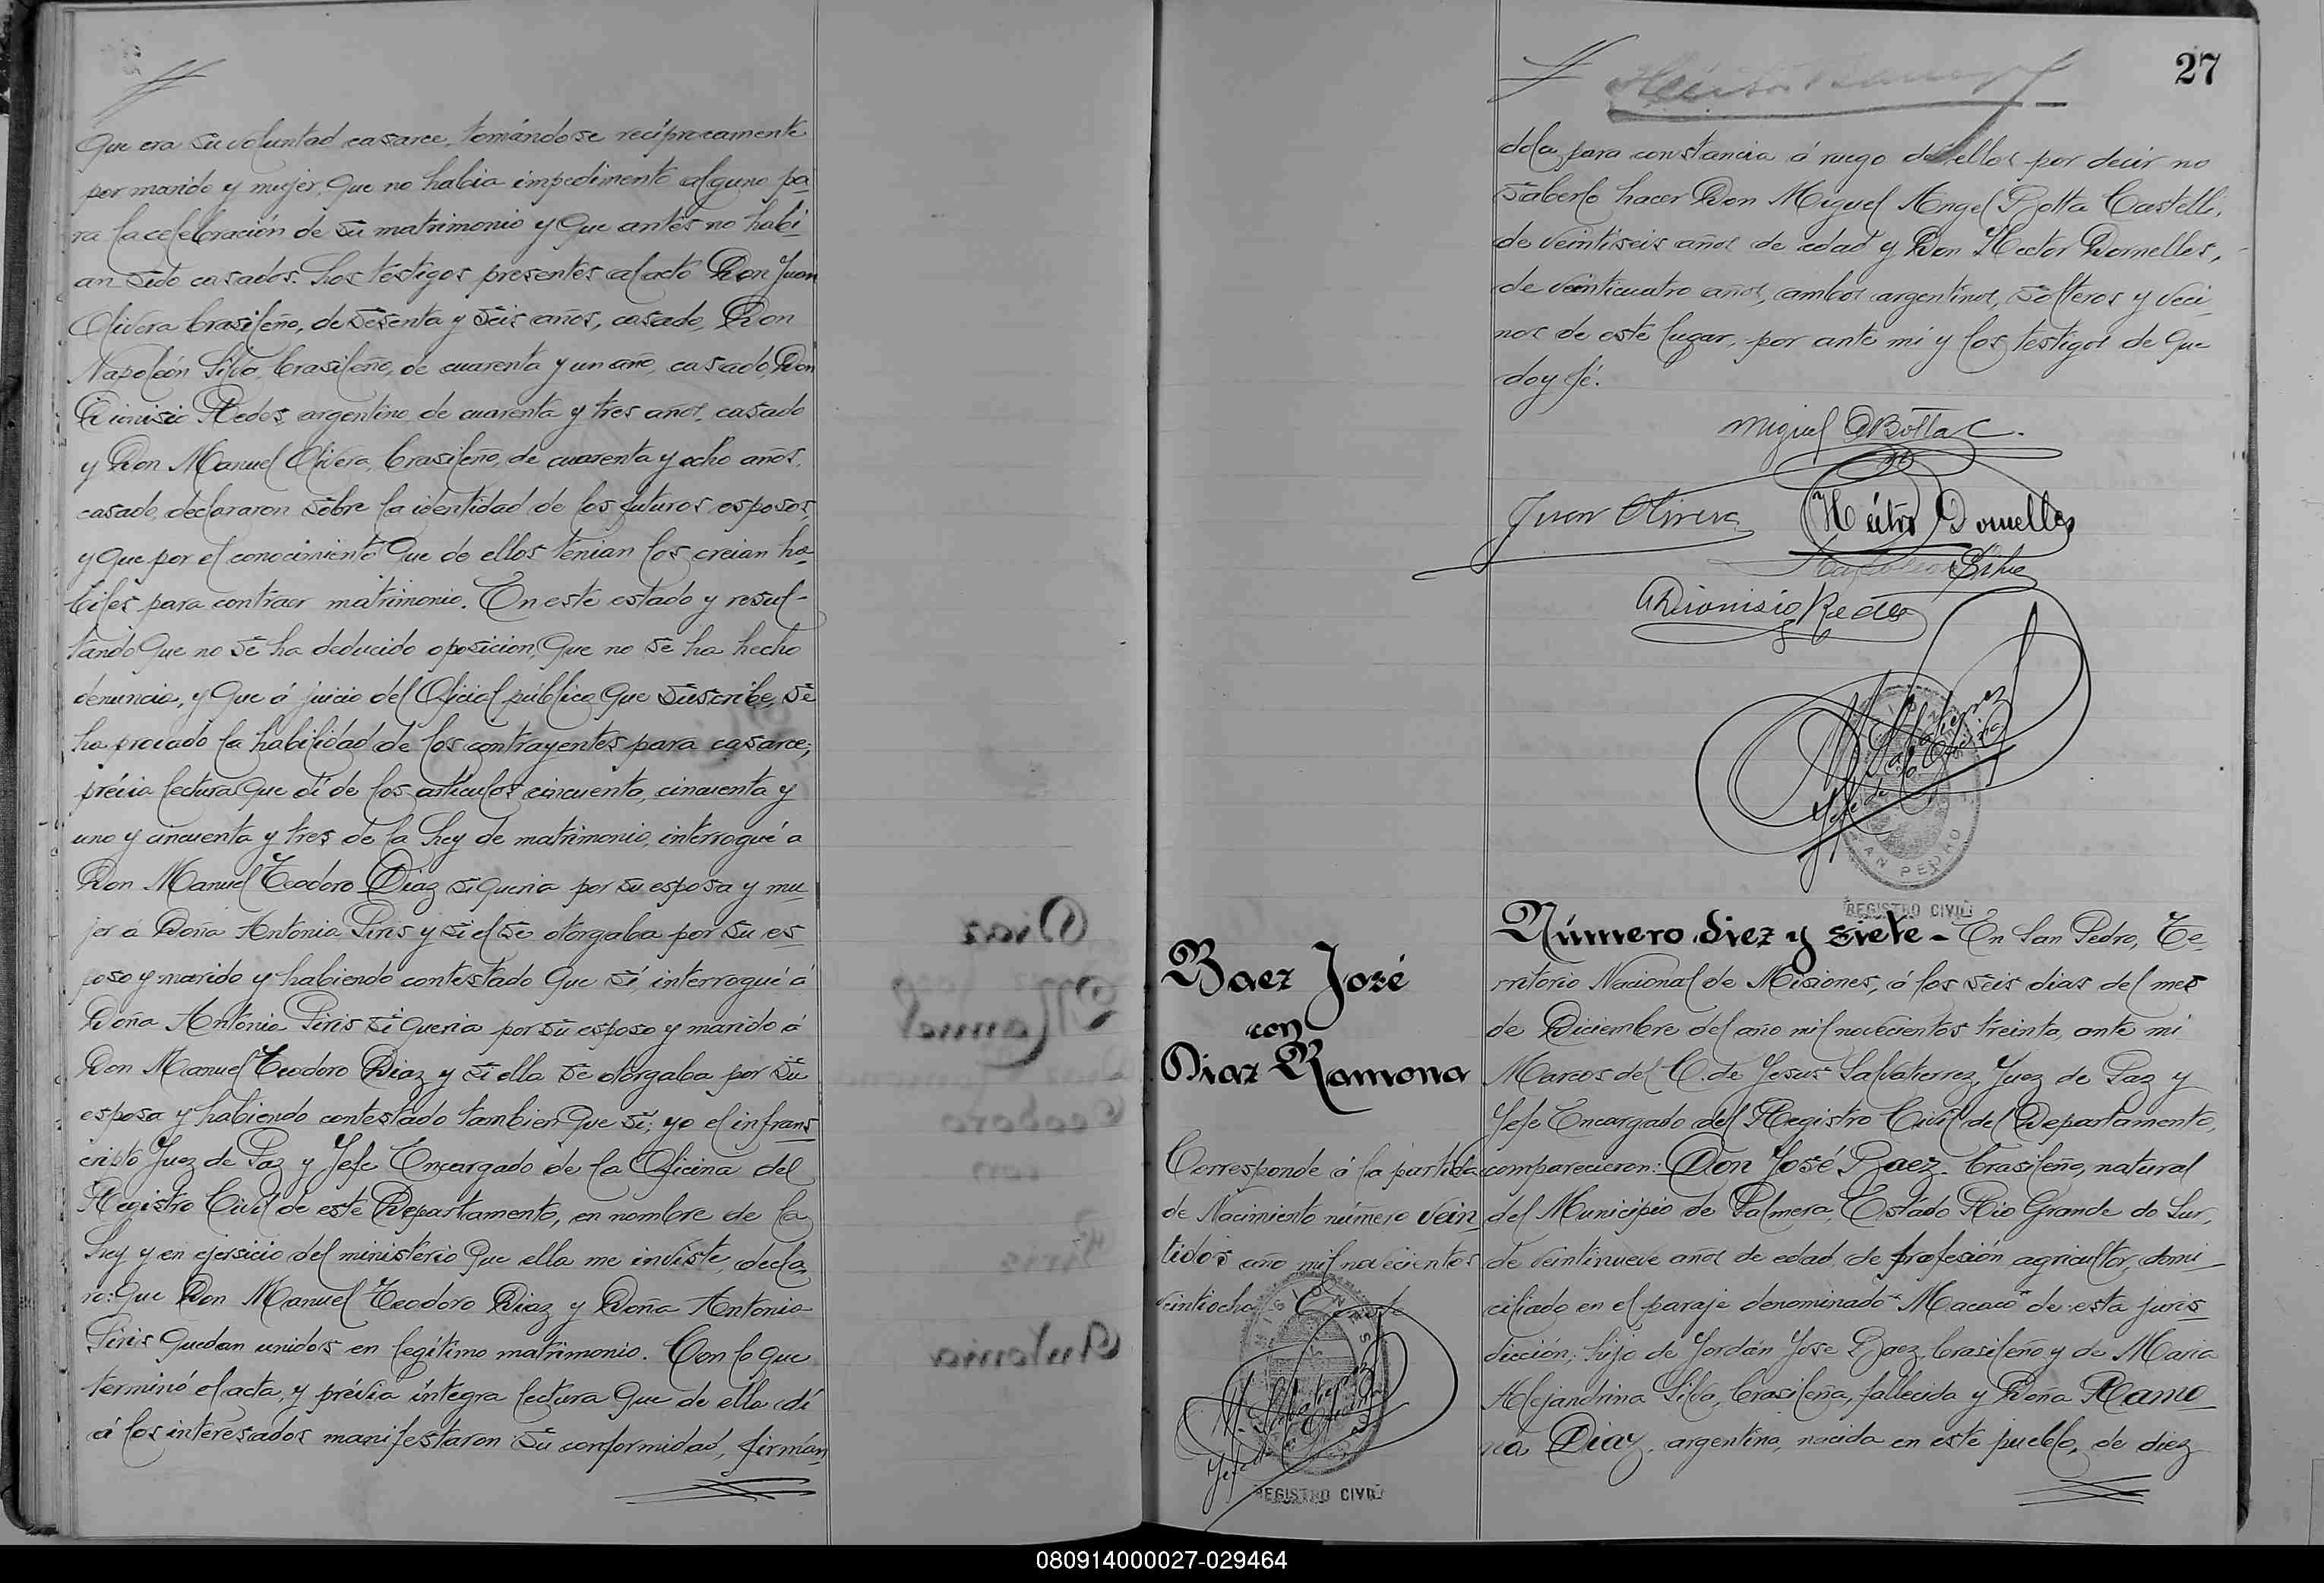 Que era su voluntad casarce, tomándose recíprocamente
por marido y mujer, Que no habia impedimento alguno pa-
ra la celebración de su matrimonio y Que antes no habi-
an sido casados. Los testigos presentes al acto Don Juan
Olivera brasileño, de sesenta y seis años, casado, Don
Napoleón Silva, brasileño, de cuarenta y un año, casado, Don
Dionisio Redes argentino de cuarenta y tres años, casado
y Don Manuel Olivera, brasileño, de cuarenta y ocho años,
casado, declararon sobre la identidad de los futuros esposos,
y Que por el conocimiento Que de ellos tenian los creian há-
biles para contraer matrimonio. En este estado y resul-
tando Que no se ha deducido oposicion, Que no se ha hecho
denuncia, y Que á juicio del Oficial público Que suscribe, se
ha provado la habilidad de los contrayentes para casarce;
prévia lectura Que dí de los artículos cincuenta, cincuenta y
uno y cincuenta y tres de la Ley de matrimonio, interrogué a
Don Manuel Teodoro Diaz si Queria por su esposa y mu-
jer á Doña Antonia Piris y si el se otorgaba por su es-
poso y marido y habiendo contestado Que sí, interrogué á
Doña Antonia Piris si Queria por su esposo y marido á
Don Manuel Teodoro Diaz y si ella se otorgaba por su
esposa y habiendo contestado tambien Que sí; yo el infrans-
cripto Juez de Paz y Jefe Encargado de la Oficina del
Registro Civil de este Departamento, en nombre de la
Ley y en ejersicio del ministerio Que ella me inviste, decla-
ro: Que Don Manuel Teodoro Diaz y Doña Antonia
Piris Quedan unidos en legítimo matrimonio. Con lo que
terminó el acta, y prévia íntegra lectura Que de ella dí
á los interesados manifestaron su conformidad, firmán
27
dola para constancia á ruego de ellos por decir no
saberlo hacer Don Miguel Angel Botta Castelli,
de veintiseis años de edad y Don Hector Dornelles,
de veinticuatro años, ambos argentinos, solteros y veci-
nos de este lugar, por ante mí y los testigos de Que
doy fé.
Miguel A Botta C.
Juan Olivera
Héctor Dornelles
Napoleon Silva
Dionisio Redes
M. Salvatierrez
Jefe de la Oficina
SAN PEDRO
REGISTRO CIVIL
Baez José
con
Diaz Ramona
Corresponde á la partida
de Nacimiento número vein
tidos año mil novecientos
veintiocho
MISIONES
M. Salvatierrez
Jefe de la Oficina
REGISTRO CIVIL
Número diez y siete - En San Pedro, Te-
rritorio Nacional de Misiones, á los seis dias del mes
de Diciembre del año mil novecientos treinta, ante mi
Marcos del C. de Jesus Salvatierrez, Juez de Paz y
Jefe Encargado del Registro Civil del Departamento,
comparecieron: Don José Baez, brasileño, natural
del Municipio de Palmera, Estado Rio Grande do Sur,
de veintinueve años de edad, de profesión agricultor, domi-
ciliado en el paraje denominado "Macaco" de esta juris-
dicción; hijo de Jordán Jose Baez, brasileño y de Maria
Alejandrina Silva, brasileña, fallecida y Doña Ramo-
na Diaz, argentina, nacida en este pueblo, de diez
080914000027-029464